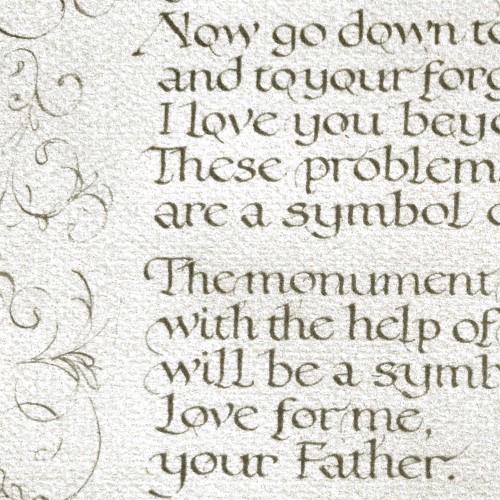 Now go down to
and to your forg
I love you beyo
These problems
are a symbol o
The monument
with the help of
will be a symb
Love for me,
your Father.